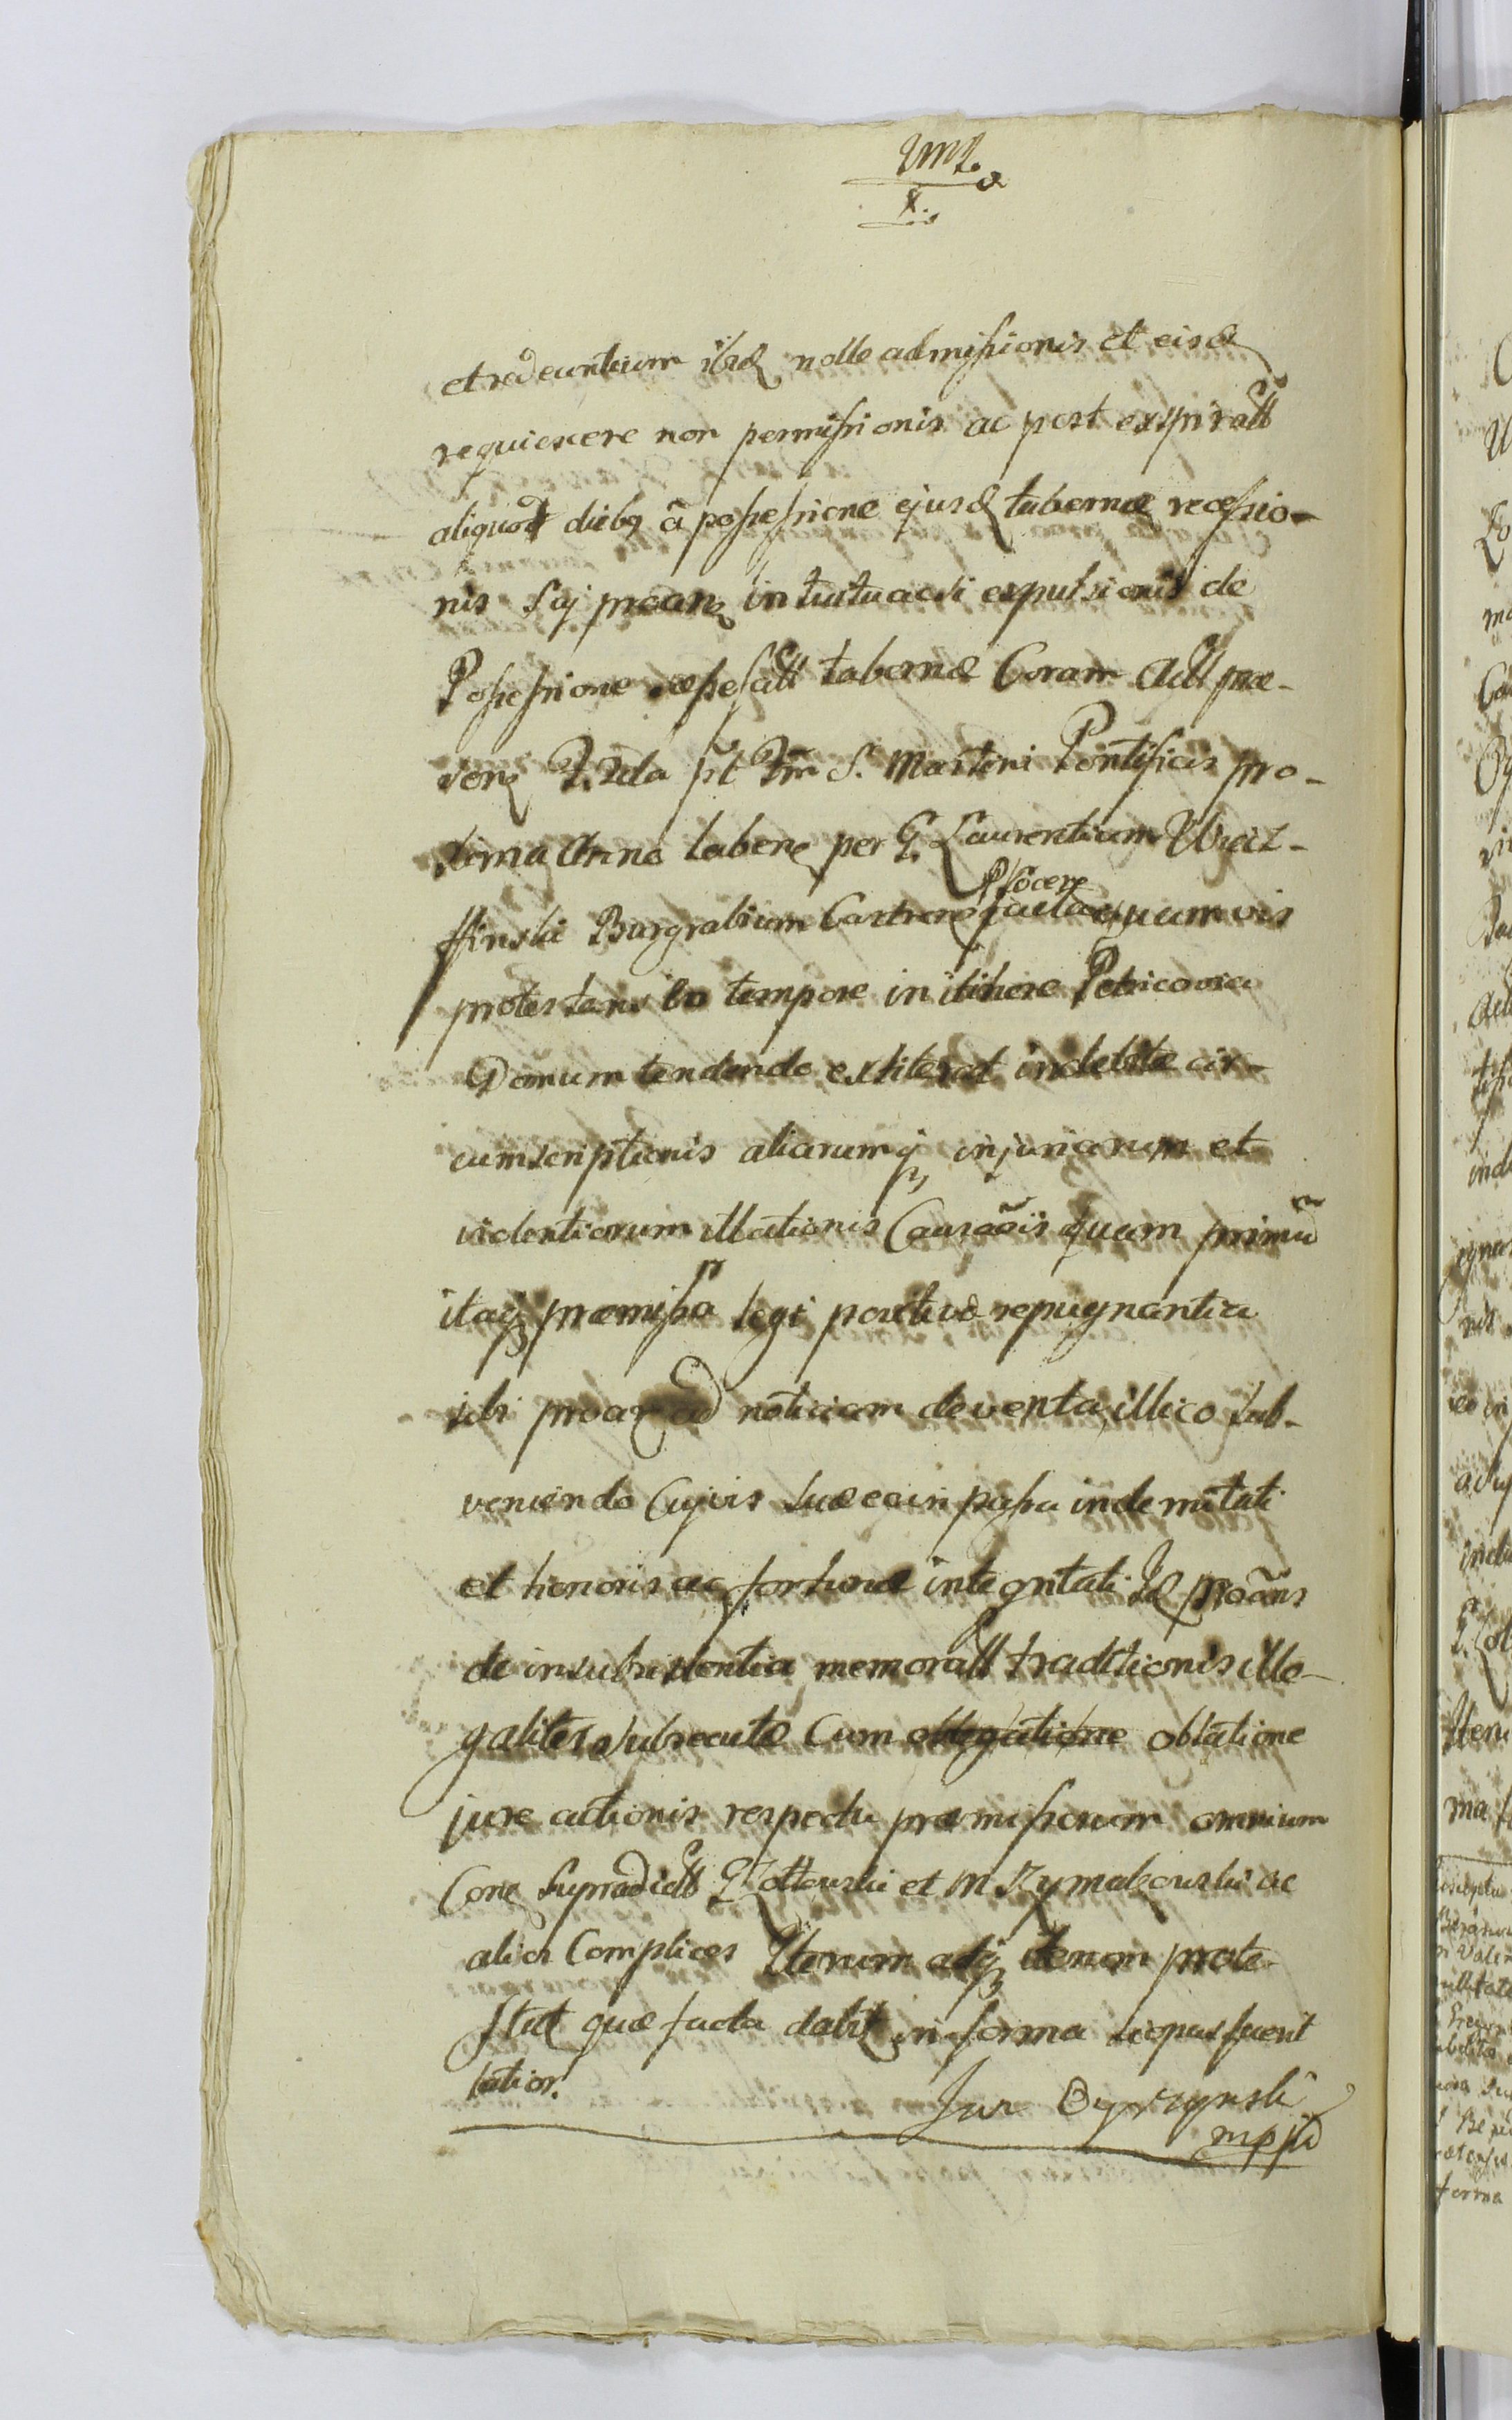 et redeuntium ibid nolle admissionis et eisd
requiescere non permissionis ac post expiratt
aliquot dieb9 ã possessione ejusd tabernæ recessio-
nis Sui proan intuitu acsi expulsionis de
Possessione sæpefatt tabernæ Coram Actt præ-
sen F. 2da pt Fm S. Martini Pontificis pro-
xima Anno labene per G. Laurentium
Burgrabium Castren Psocen factæ quamvis
protestans eo tempore in itinere Petricovia
Domum tendendo extiterat indebitæ cir-
cumscriptionis aliarumq injuriarum et
violentiarum illationis Causaõis quam primũ
itaq præmissa legi positivæ repugnantia
sibi proar ad noticiam deventa illico sub-
veniendo Cujvis suæ ea in passa indemnitati
et honoris ac fortunæ integritati Id proãns
de insubsistentia memoratt traditionis ille-
galiter subsecutæ Cum obligatione oblatione
jure actionis respectu præmissorum omnium
Con Supradictt G Zottowski et M Szymakowski ac
alios Complices Iterum atq iterum prote-
statt quæ facta dabit in forma si opus fuerit
latior.
mpp